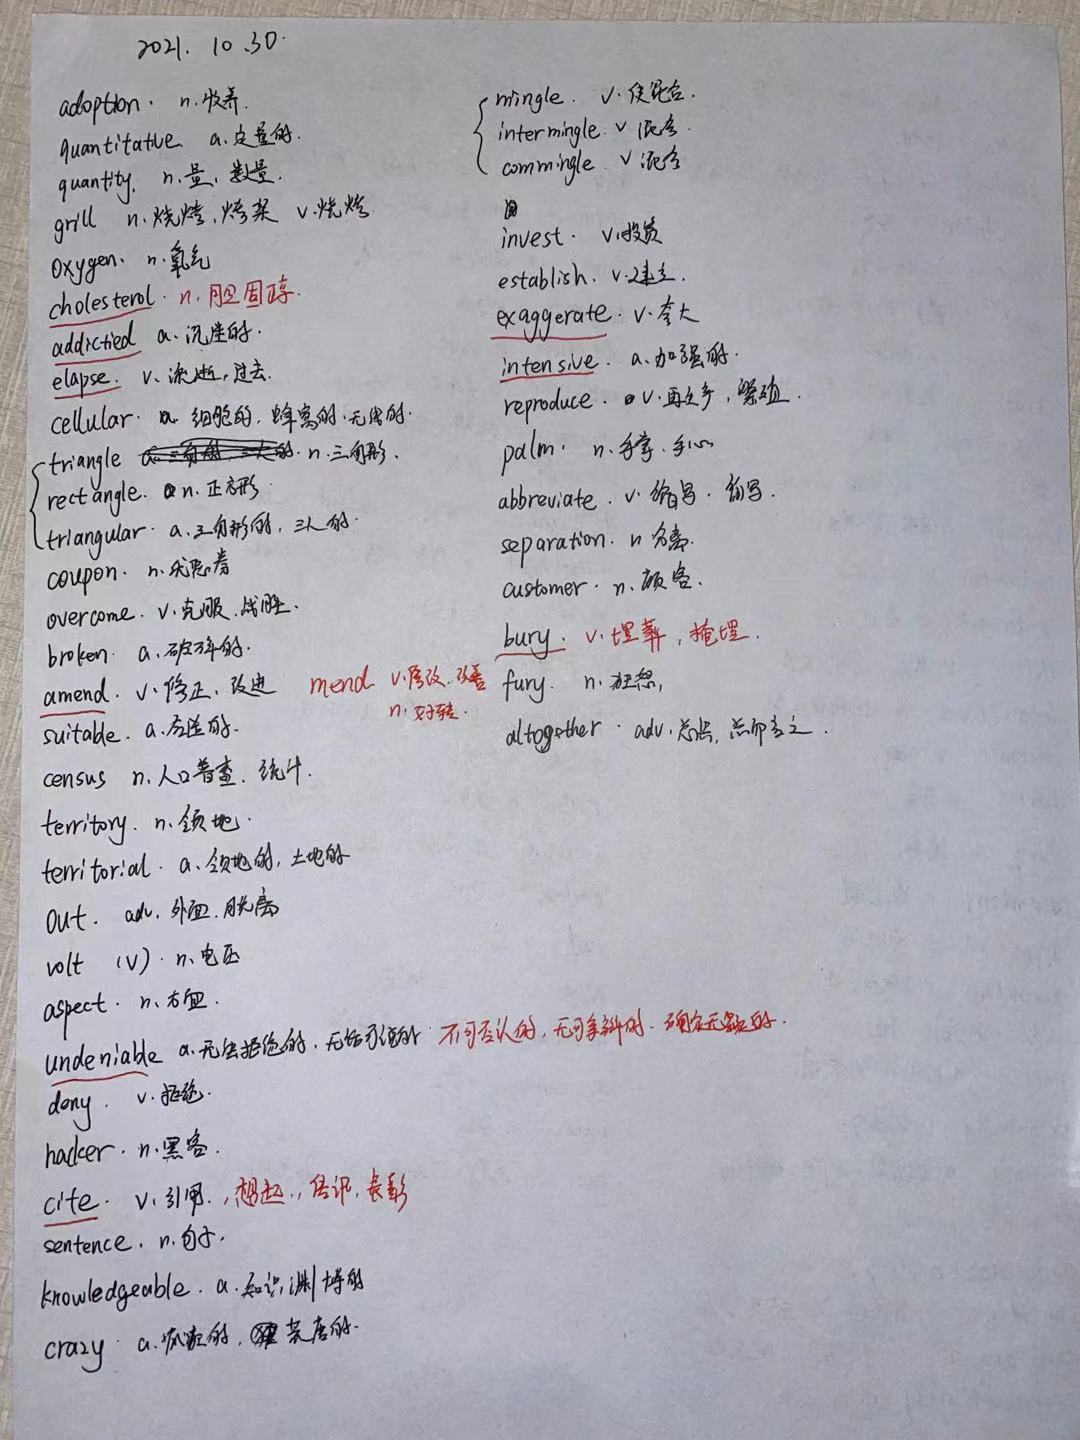 2021. 10. 30.
adoption. n. 收养.
quantitative. a. 定量的.
quantity. n. 量, 数量.
grill n. 烧烤, 烤架 v. 烧烤
oxygen. n. 氧气
cholesterol. n. 胆固醇.
addictied a. 沉迷的.
elapse. v. 流逝, 过去.
cellular. a. 细胞的, 蜂窝的. 无线的.
triangle n. 三角形.
rectangle. n. 正方形.
triangular. a. 三角形的, 三人的.
coupon. n. 优惠券
overcome. v. 克服. 战胜.
broken. a. 破碎的.
amend. v. 修正. 改进 mend v. 修改. 改善
n. 好转.
suitable. a. 合适的.
census n. 人口普查. 统计.
territory. n. 领地.
territorial. a. 领地的, 土地的
out. adv. 外面. 脱离
volt (V). n. 电压
aspect. n. 方面.
undeniable a. 无法拒绝的. 不可否认的, 无可争辩的. 确定无疑的.
deny. v. 拒绝.
hacker. n. 黑客.
cite. v. 引用. , 想起., 传讯, 表彰
sentence. n. 句子.
knowledgeable. a. 知识渊博的
crazy. a. 疯狂的, 荒唐的.
mingle. v. 使混合.
intermingle. v 混合.
commingle. v 混合
invest. v. 投资
establish. v. 建立.
exaggerate. v. 夸大
intensive. a. 加强的.
reproduce. v. 再生产, 繁殖.
palm. n. 手掌. 手心
abbreviate. v. 缩写. 简写.
separation. n 分离.
customer. n. 顾客.
bury. v. 埋葬, 掩埋.
fury. n. 狂怒,
altogether. adv. 总共, 总而言之.